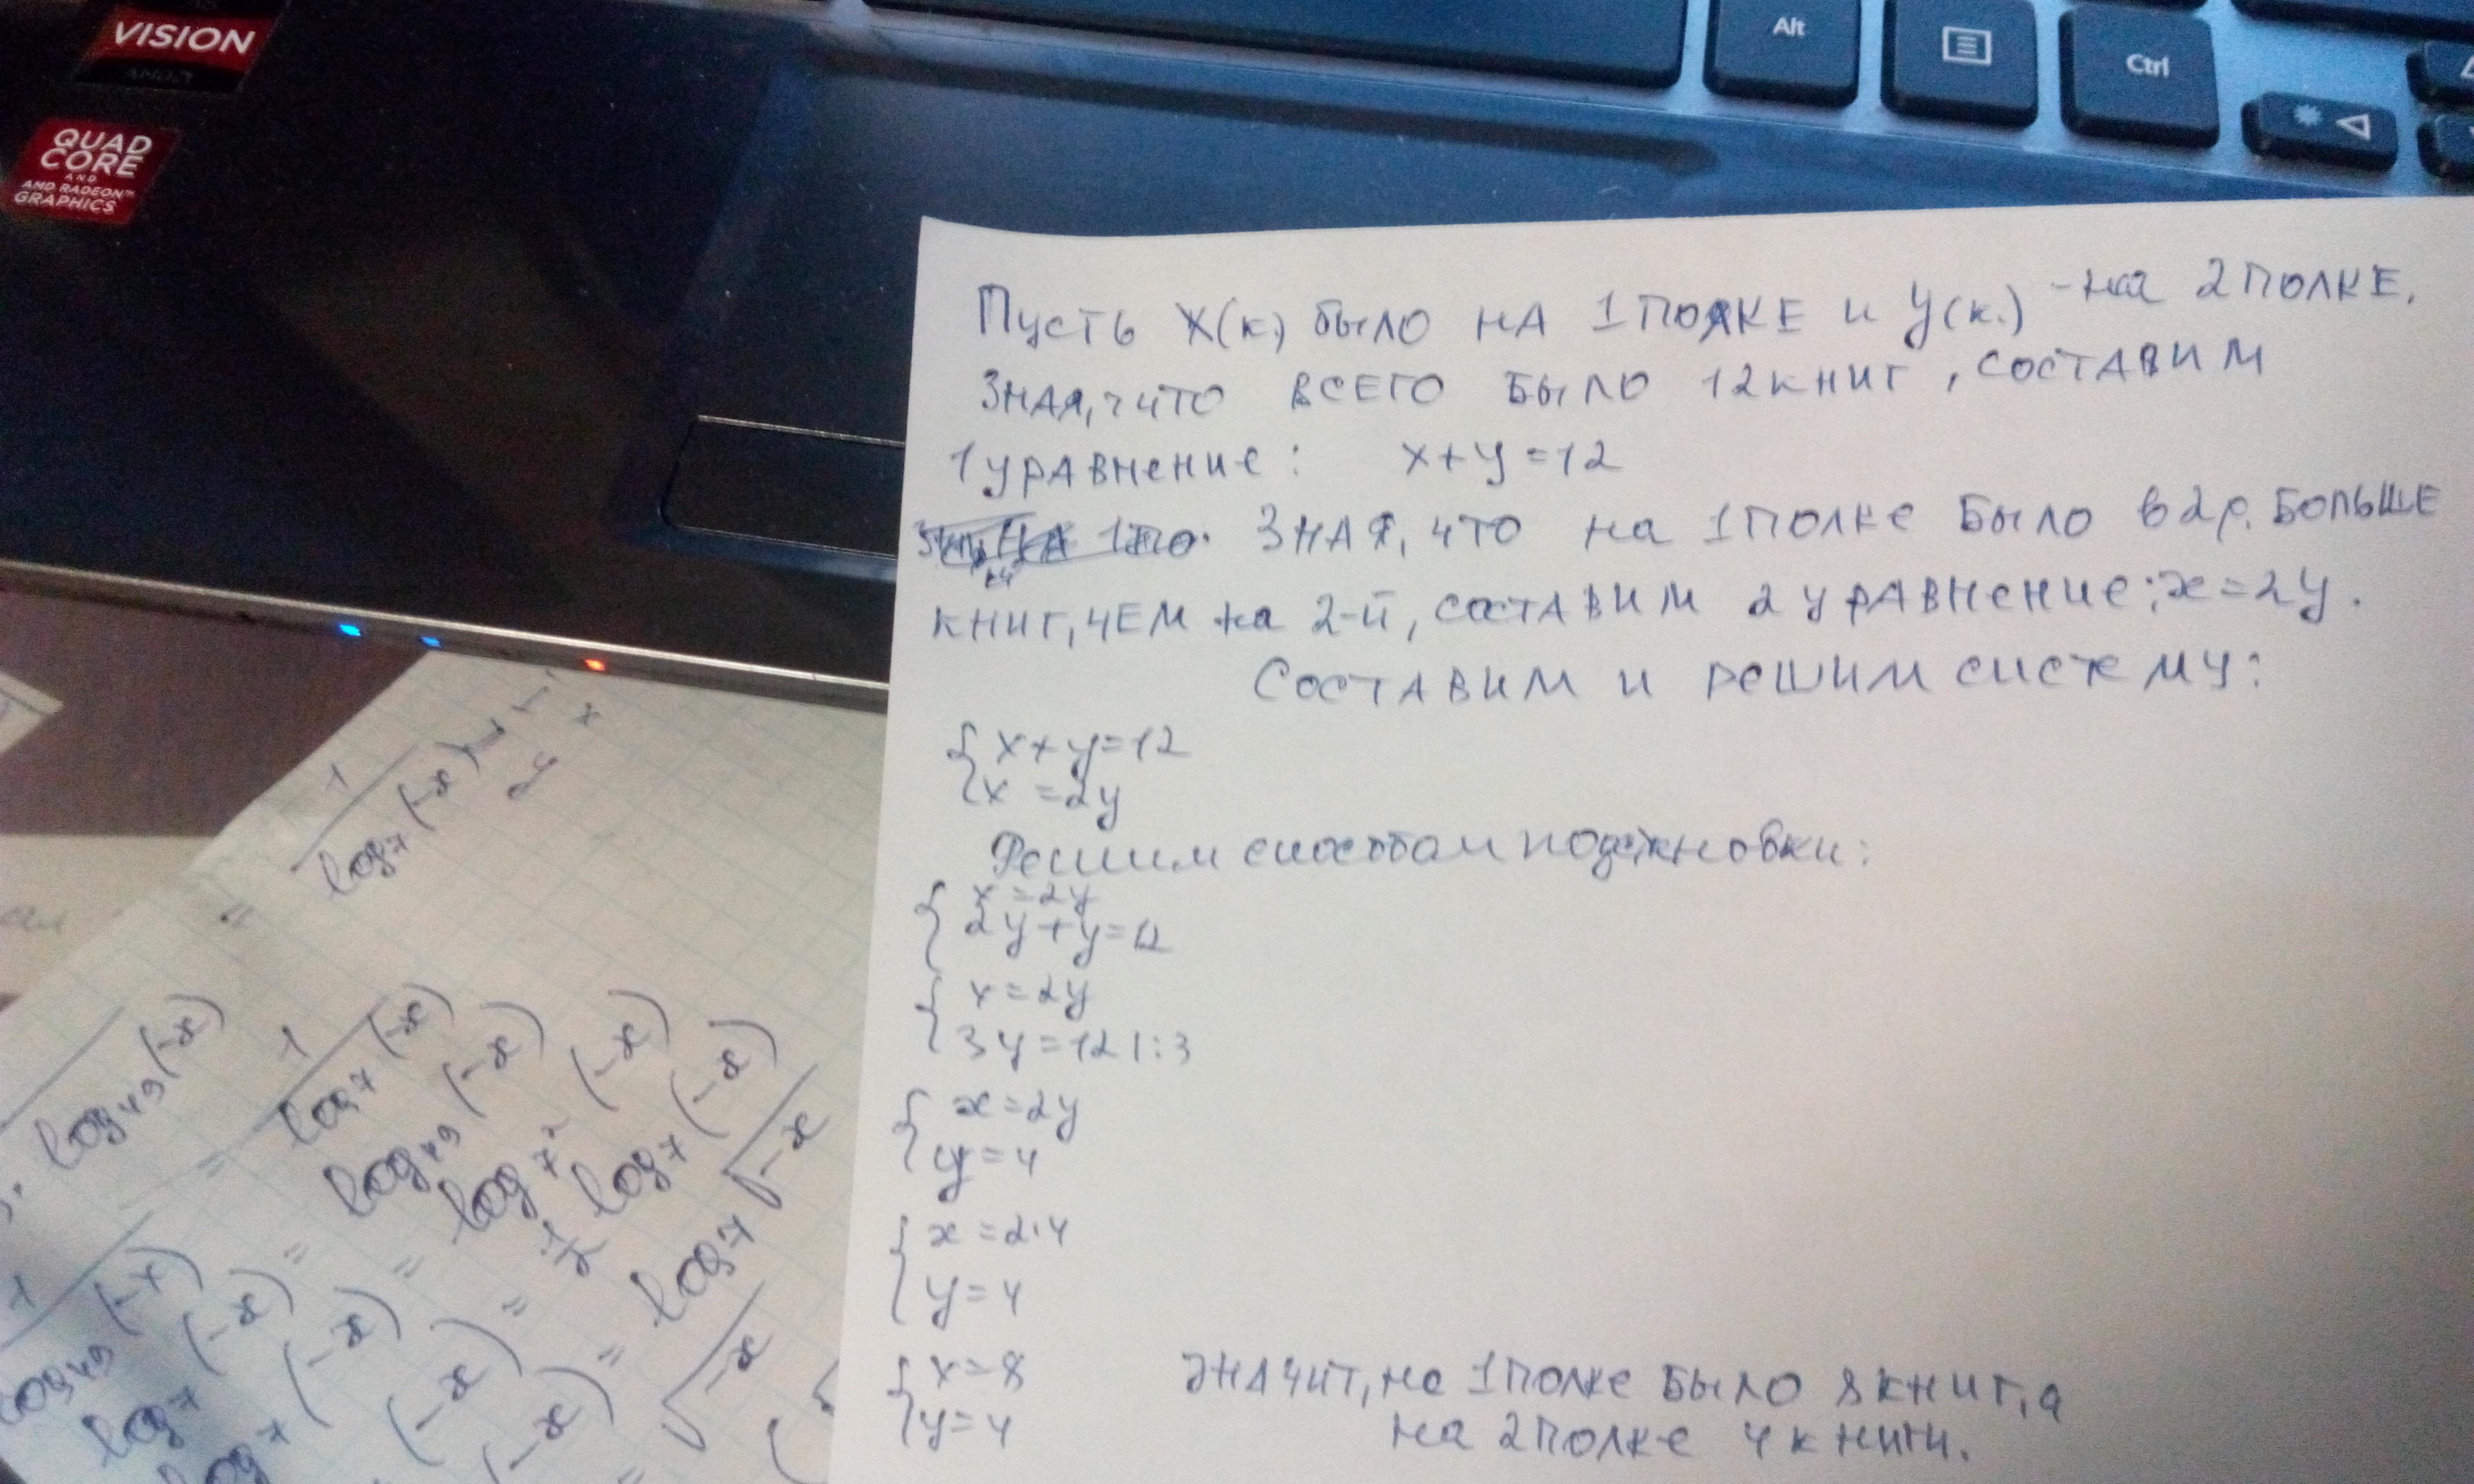 VISION
AMD
QUAD
CORE
AND
AMD RADEON™
GRAPHICS
Alt
Ctrl
Пусть x(к) было на 1 полке и y(к.) - на 2 полке.
Зная, что всего было 12 книг, составим
1 уравнение: x+y=12
Зная, что на 1 полке было в 2 р. больше
книг, чем на 2-й, составим 2 уравнение: x=2y.
Составим и решим систему:
{ x+y=12
x =2y
Решим способом подстановки:
{ x=2y
2y+y=12
{ x=2y
3y=12 |:3
{ x=2y
y=4
{ x=2·4
y=4
{ x=8
y=4
Значит, на 1 полке было 8 книг, а
на 2 полке 4 книги.
1
log₇(-x)
log₄₉(-x)
1
log₇(-x)
log₄₉(-x)
log₇²(-x)
log₇(-x)
log₇√-x
1
log₄₉(-x)
log₇(-x)
√-x